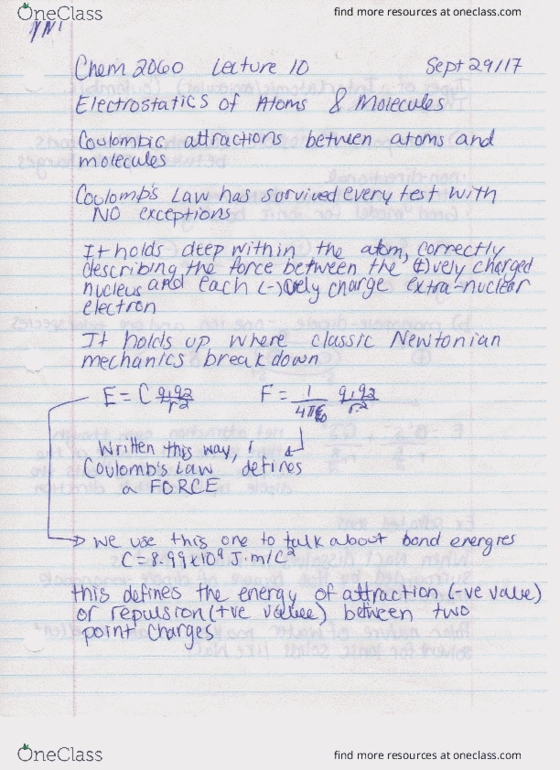 OneClass
find more resources at oneclass.com
Chem 2060 Lecture 10 Sept 29/17
Electrostatics of Atoms & Molecules
Coulombic attractions between atoms and
molecules
Coulomb's Law has survived every test with
NO exceptions
It holds deep within the atom, correctly
describing the force between the (+)vely charged
nucleus and each (-)vely charge extra-nuclear
electron
It holds up where classic Newtonian
mechanics break down
E = C q1q2/r² F = 1/4πε0 q1q2/r²
Written this way,
Coulomb's Law defines
a FORCE
we use this one to talk about bond energies
C = 8.99x10⁹ J·m/C²
this defines the energy of attraction (-ve value)
or repulsion (+ve value) between two
point charges
OneClass
find more resources at oneclass.com